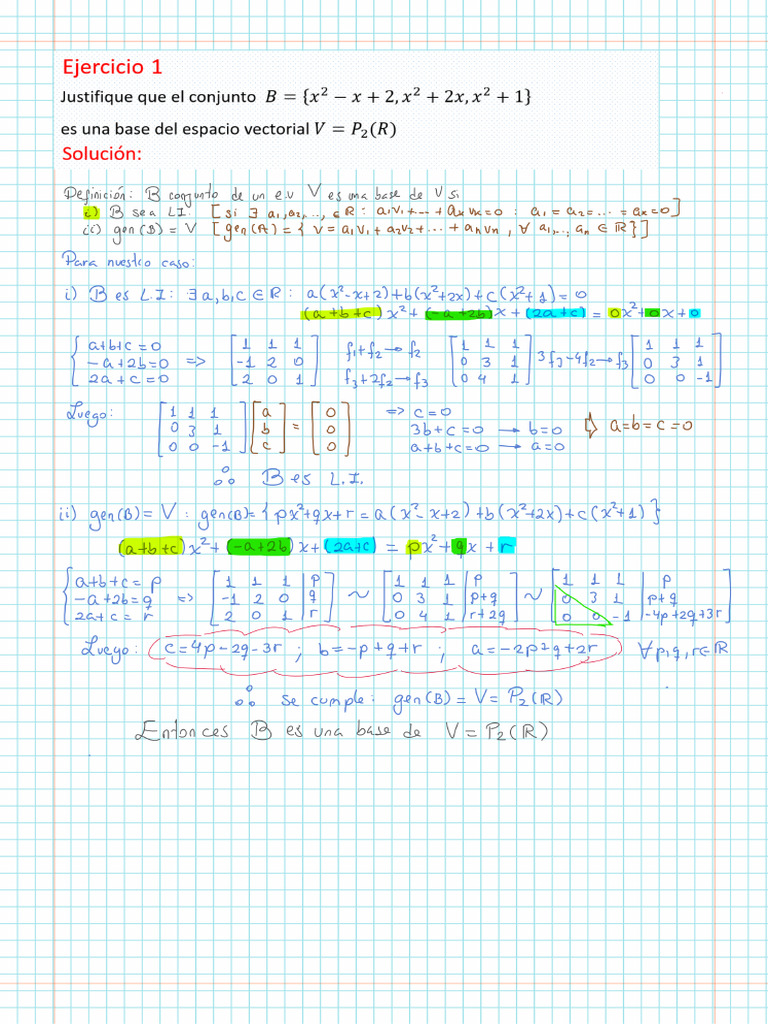 Ejercicio 1
Justifique que el conjunto B = {x² − x + 2, x² + 2x, x² + 1}
es una base del espacio vectorial V = P₂(R)
Solución:
Definición: B conjunto de un e.v V es una base de V si
i) B sea L.I. [si ∃ a₁,a₂,..., ∈ R: a₁v₁+...+aₙvₙ=0 : a₁=a₂=...=aₙ=0]
ii) gen(B) = V [gen(A) = { v = a₁v₁ + a₂v₂ +...+ aₙvₙ, ∀ a₁,..., aₙ ∈ R}]
Para nuestro caso:
i) B es L.I: ∃ a,b,c ∈ R: a(x²-x+2)+b(x²+2x)+c(x²+1)=0
(a+b+c)x²+(-a+2b)x+(2a+c)=0x²+0x+0
{ a+b+c=0 [1 1 1] f₁+f₂→f₂ [1 1 1] 3f₃-4f₂→f₃ [1 1 1]
-a+2b=0 => [-1 2 0] [0 3 1] [0 3 1]
2a+c=0 [2 0 1] f₃+2f₂→f₃ [0 4 1] [0 0 -1]
Luego: [1 1 1] [a] [0] => c=0
[0 3 1] [b] = [0] 3b+c=0 → b=0 ⇒ a=b=c=0
[0 0 -1] [c] [0] a+b+c=0 → a=0
∴ B es L.I.
ii) gen(B)=V : gen(B)={px²+qx+r=a(x²-x+2)+b(x²+2x)+c(x²+1)}
(a+b+c)x²+(-a+2b)x+(2a+c)=px²+qx+r
{ a+b+c=p [1 1 1 | p] [1 1 1 | p] [1 1 1 | p]
-a+2b=q => [-1 2 0 | q] ~ [0 3 1 | p+q] ~ [0 3 1 | p+q]
2a+c=r [2 0 1 | r] [0 4 1 | r+2q] [0 0 -1 | -4p+2q+3r]
Luego: c=4p-2q-3r ; b=-p+q+r ; a=-2p²q+2r ∀p,q,r∈R
∴ se cumple: gen(B)=V=P₂(R)
Entonces B es una base de V=P₂(R)